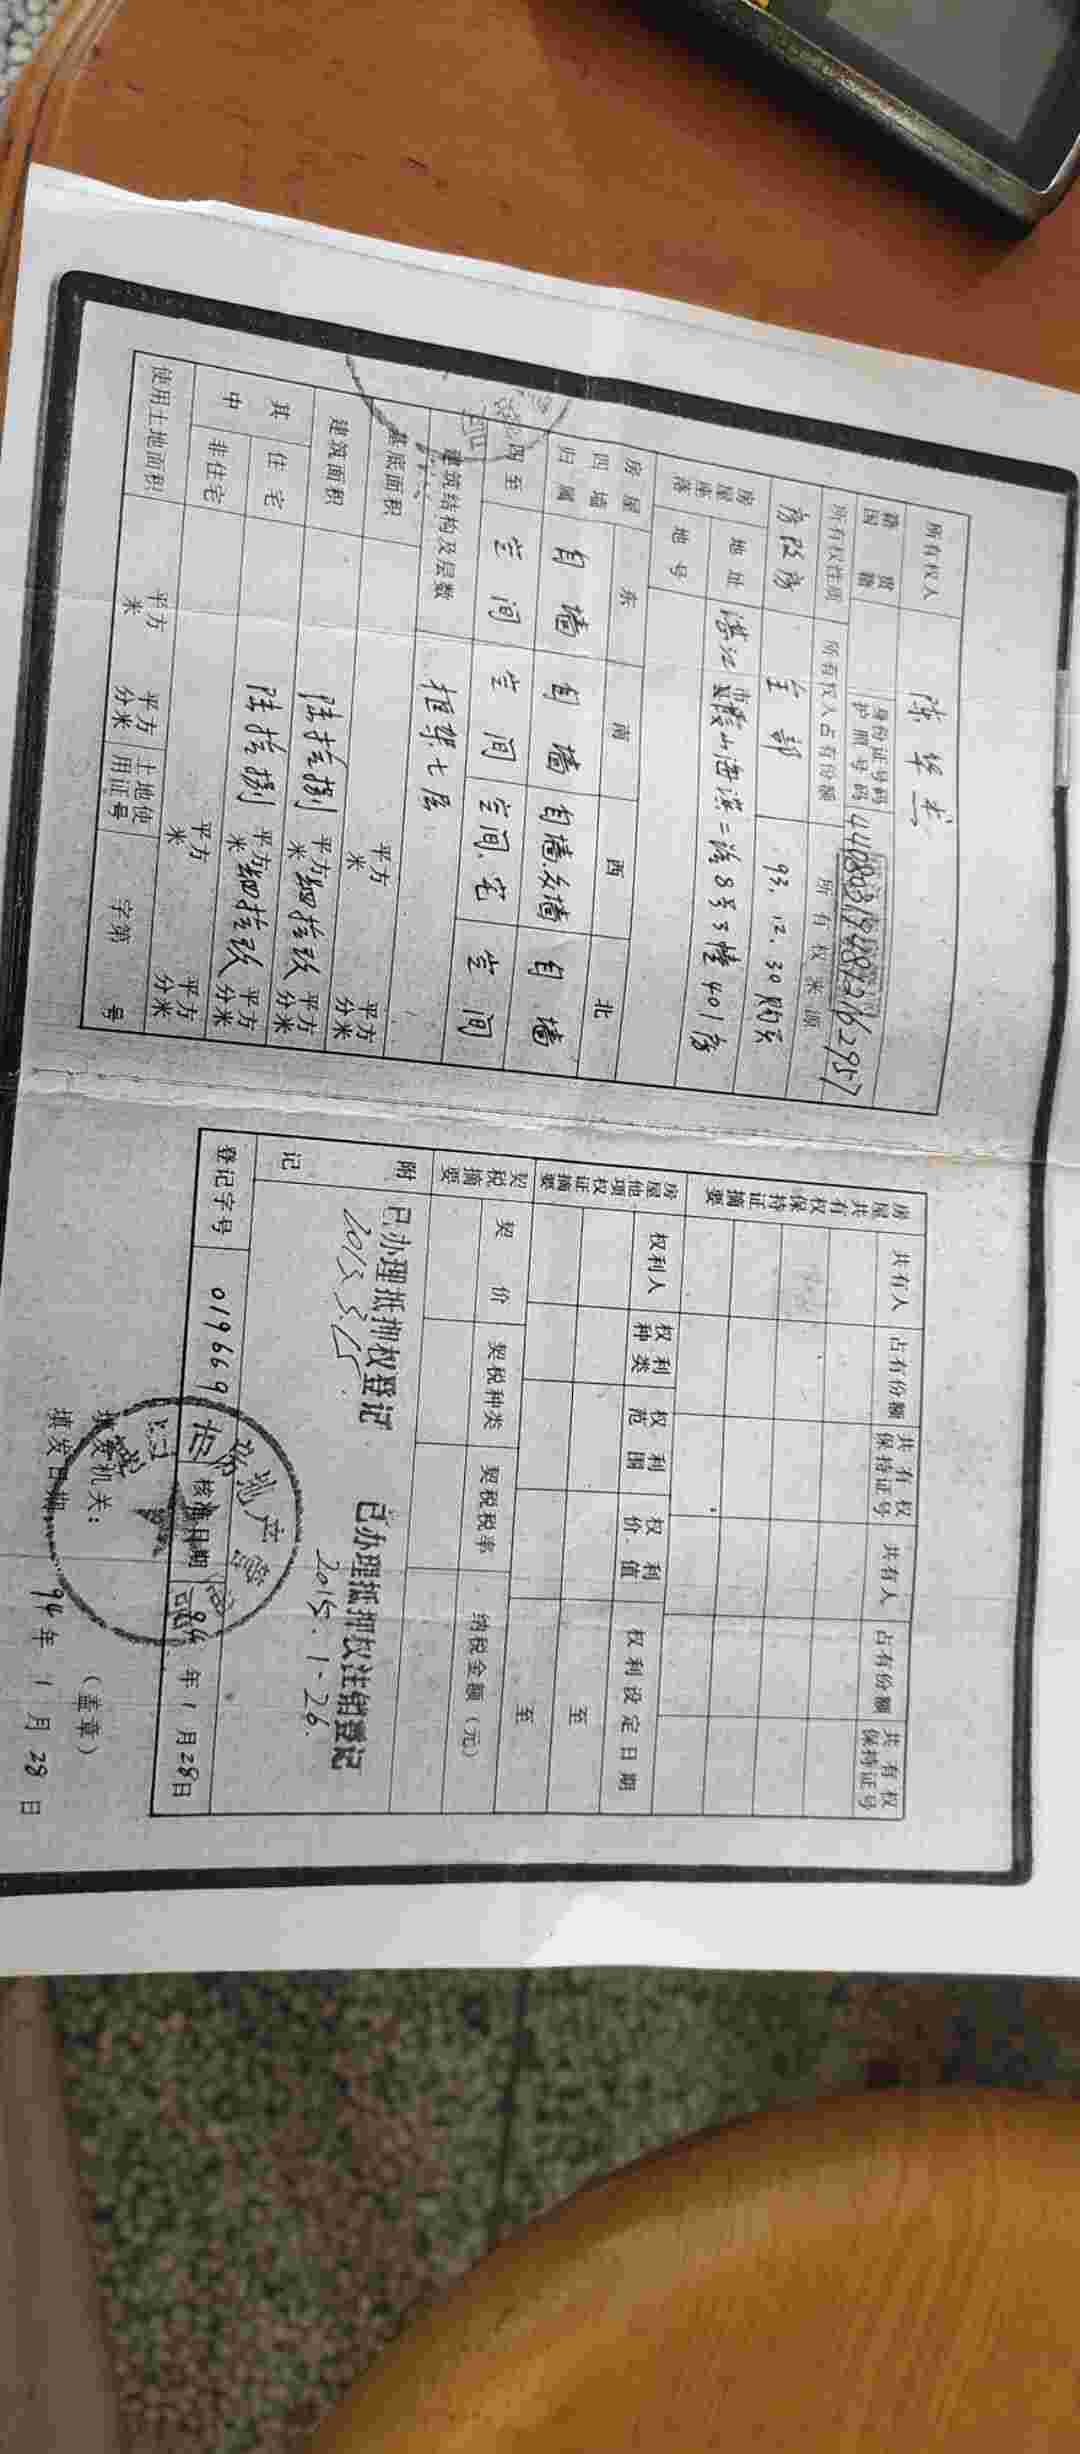 所有权人 陈华英
国籍 籍贯 身份证号码 护照号码
所有权性质 所有权人占有份额 所有权来源
房改房 全部 93.12.30购买
房屋座落 地址 湛江市霞山海滨二路8号3幢401房
地号
房屋四墙归属 东 南 西 北
自墙 自墙 自墙 自墙
四至 空间 空间 空间、宅 空间
建筑结构及层数 框架七层
基底面积 平方米 平方分米
建筑面积 陆拾捌平方米肆拾玖平方分米
其中 住宅 陆拾捌平方米肆拾玖平方分米
非住宅 平方米 平方分米
使用土地面积 平方米 平方分米 土地使用证号 字第 号
房屋共有权保持证摘要 共有人 占有份额 共有权保持证号 共有人 占有份额 共有权保持证号
房屋他项权证摘要 权利人 权利种类 权利范围 权利价值 权利设定日期
至
至
契税摘要 契价 契税种类 契税税率 纳税金额(元)
附记
已办理抵押权登记 已办理抵押权注销登记
2015.1-26.
登记字号 019669 核准日期 94年1月28日
填发机关: (盖章)
填发日期: 94年1月28日